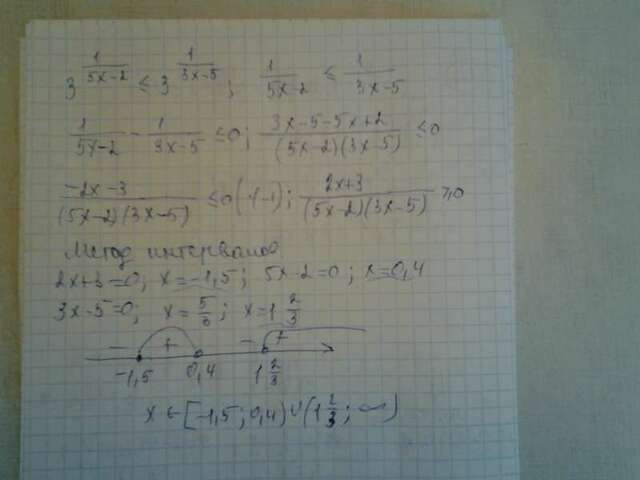 3^(1/(5x-2)) ≤ 3^(1/(3x-5)); 1/(5x-2) ≤ 1/(3x-5)
1/(5x-2) - 1/(3x-5) ≤ 0; (3x-5-5x+2)/((5x-2)(3x-5)) ≤ 0
(-2x-3)/((5x-2)(3x-5)) ≤ 0 (·(-1)); (2x+3)/((5x-2)(3x-5)) ≥ 0
Метод интервалов
2x+3=0; x=-1,5; 5x-2=0; x=0,4
3x-5=0; x=5/3; x=1 2/3
- + - +
-1,5 0,4 1 2/3
x ∈ [-1,5; 0,4) ∪ (1 2/3; ∞)